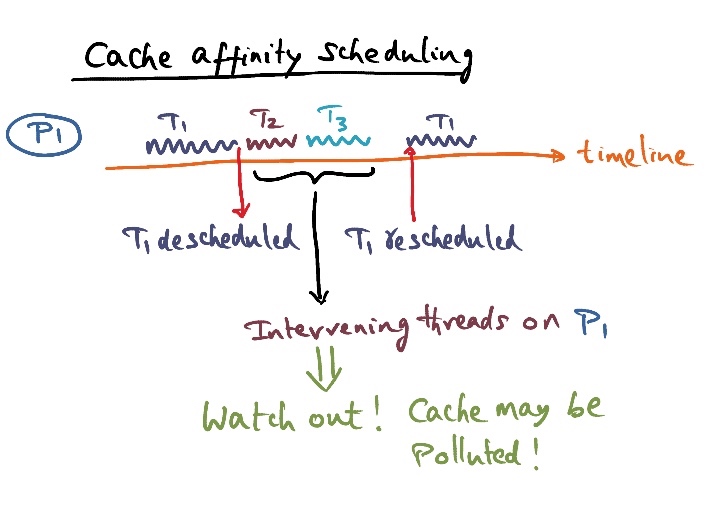 Cache affinity scheduling
P1
T1 T2 T3 T1
timeline
T1 descheduled T1 rescheduled
Intervening threads on P1
Watch out! Cache may be
Polluted!